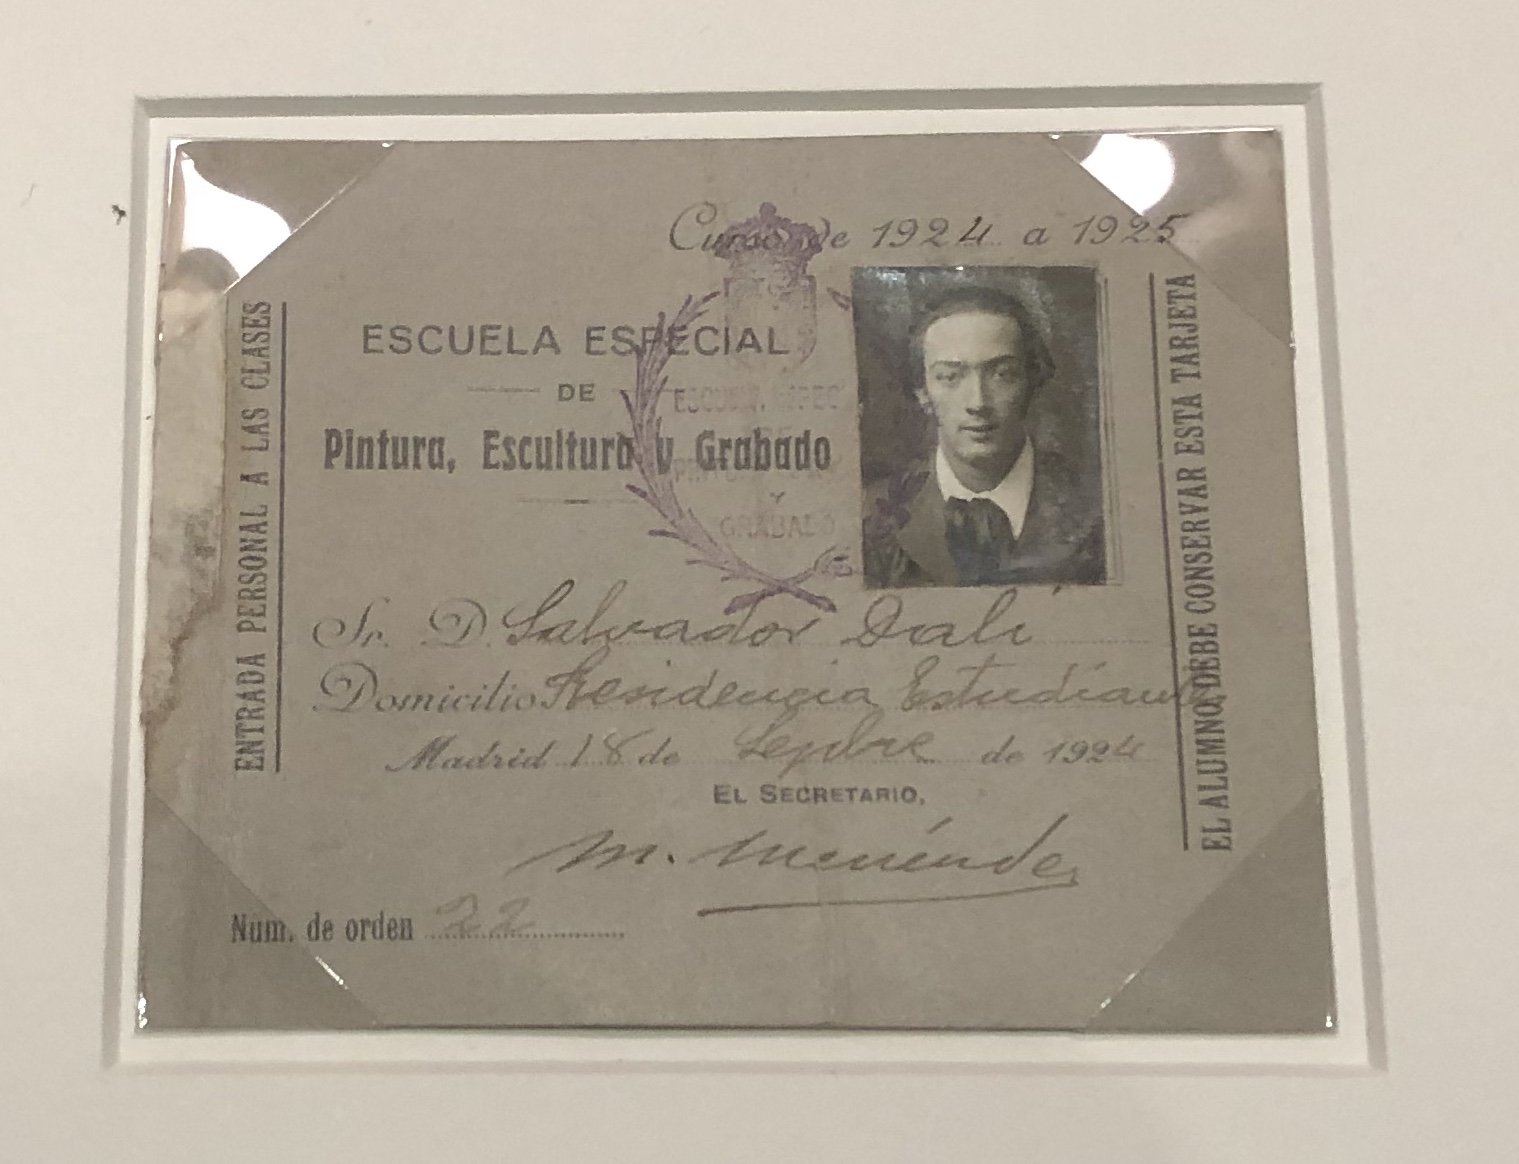 Curso de 1924 a 1925
ENTRADA PERSONAL A LAS CLASES
ESCUELA ESPECIAL
DE
Pintura, Escultura y Grabado
ESCUELA ESPEC
DE
Y
GRABADO
Sr. D. Salvador Dalí
Domicilio Residencia Estudiantes
Madrid 18 de Sepbre de 1924
EL SECRETARIO,
M. Menéndez
Núm. de orden 22
EL ALUMNO DEBE CONSERVAR ESTA TARJETA